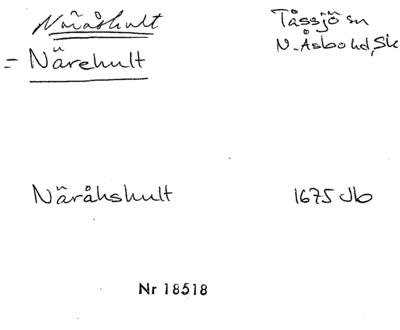 Näråshult Tåssjö sn
= Närehult N. Åsbo hd, Sk
Näråhshult 1675 Jb
Nr 18518